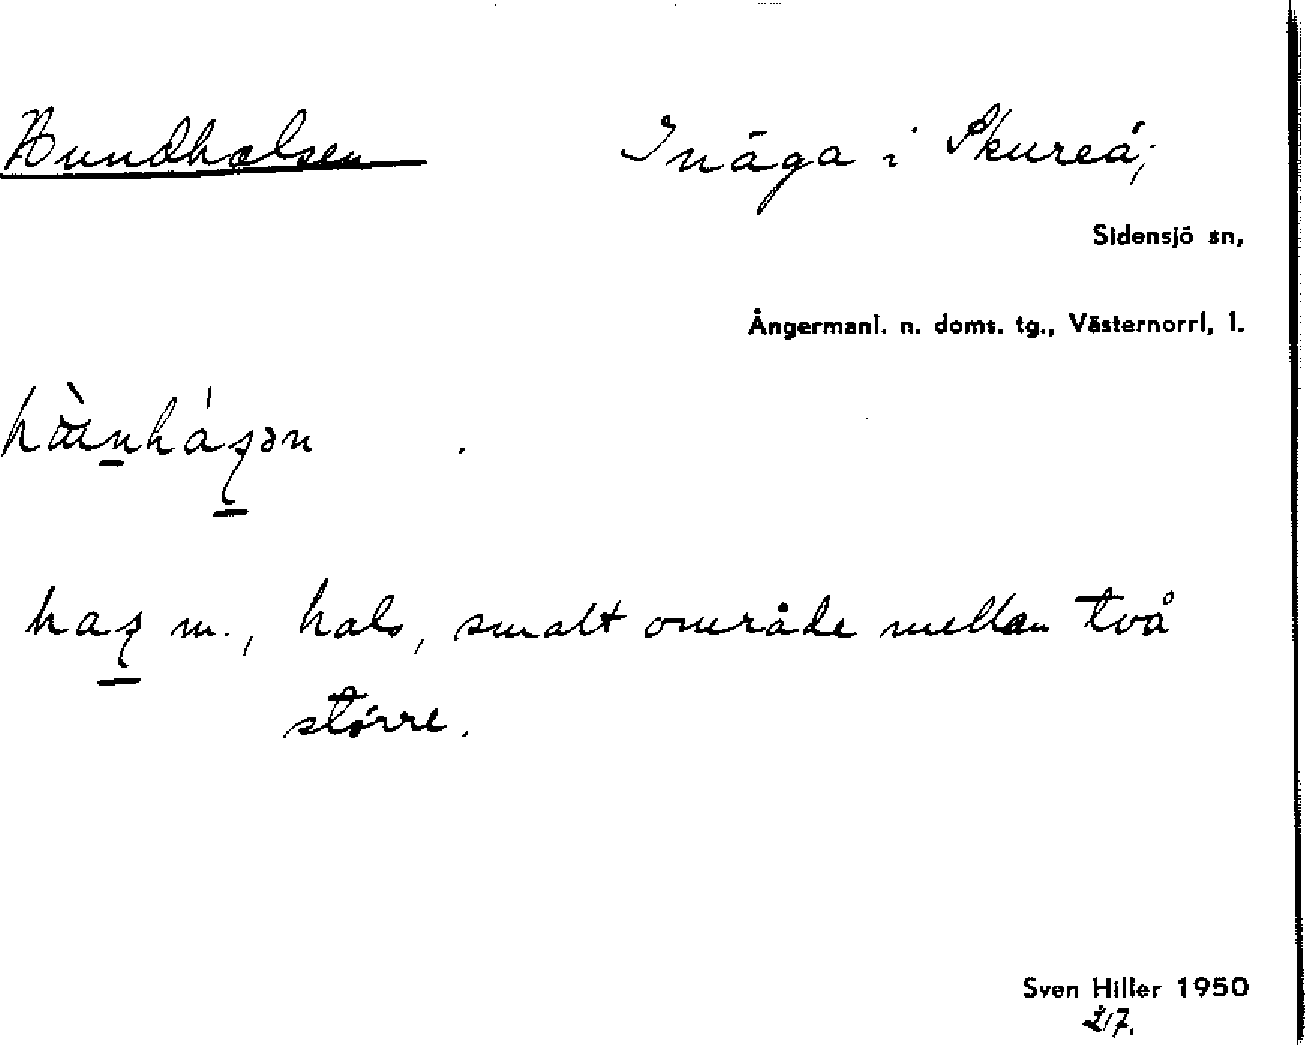 Hundhalsen Inäga i Skureå;
Sidensjö sn,
Ångermanl. n. doms. tg., Västernorrl. l.
m., hals, smalt område mellan två
större.
Sven Hiller 1950
2/7.